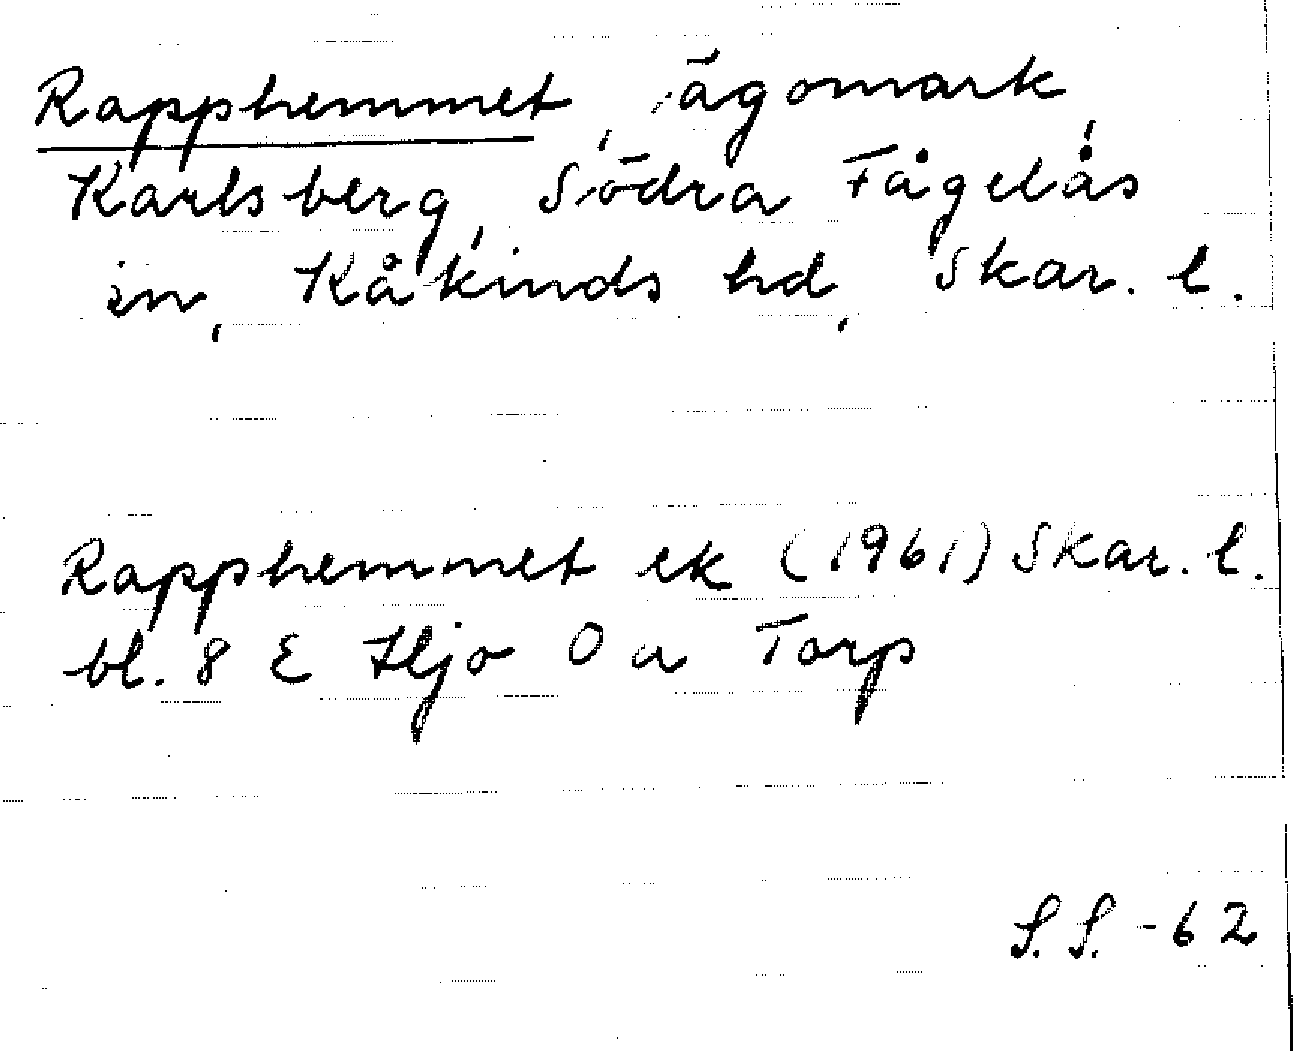 Rapphemmet, ägomark,
Karlsberg, Södra Fågelås
sn, Kåkinds hd, Skar. l.
Rapphemmet ek (1961) Skar. l.
bl. 8 E Hjo 0 a Torp
S.S. -62